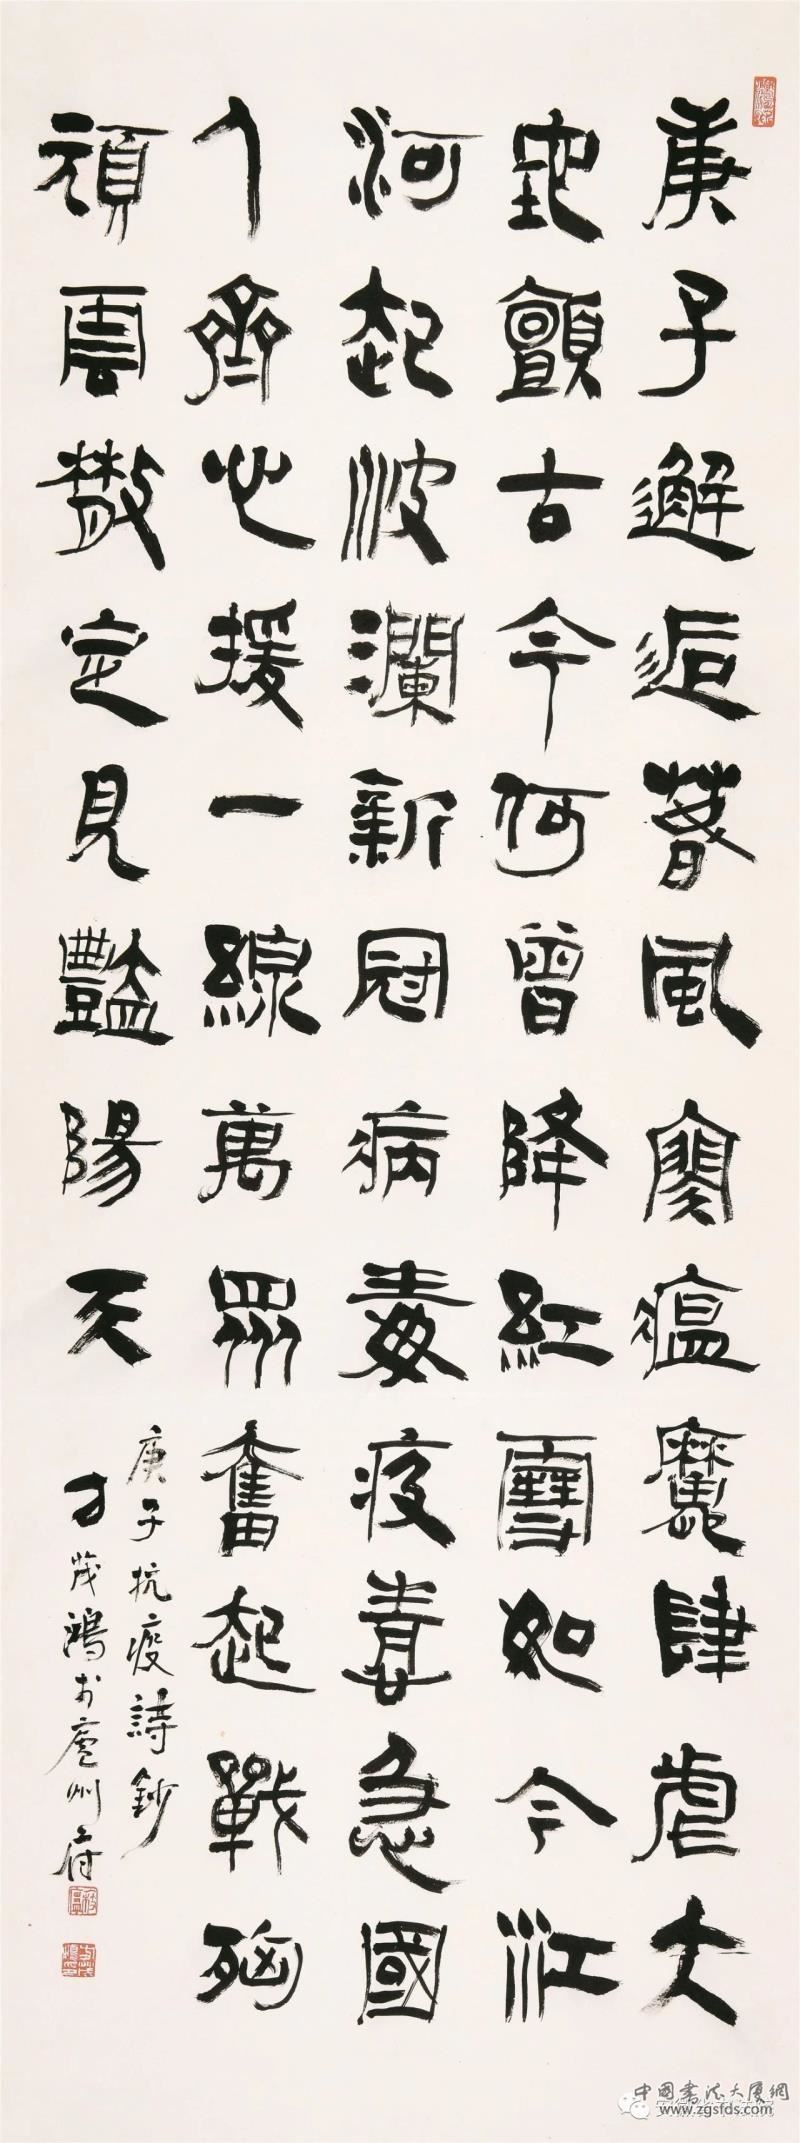 庚子邂逅暮風寥瘟魔肆虐大
地顫古今何曾降紅雪如今江
河起波瀾新冠病毒疫毒急國
人齊心援一線萬眾奮起戰
頑雲散定見豔陽天
庚子抗疫詩鈔
方茂鴻於廬州府
中國書法大廈網
www.zgsfds.com